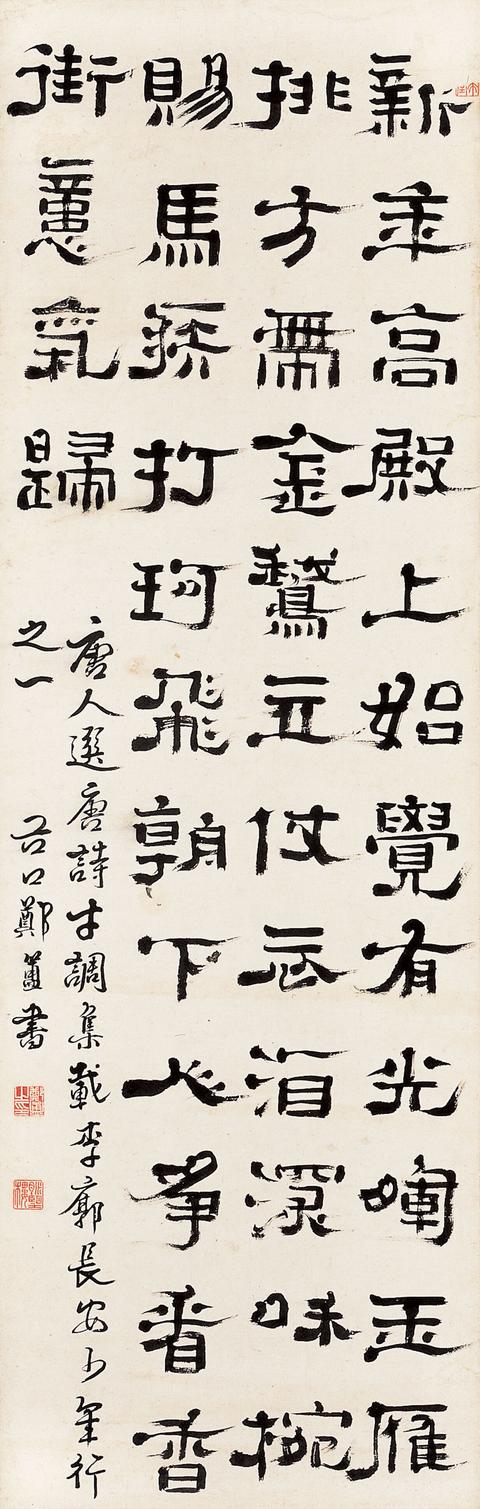 新年高殿上始覺有光暉玉雁
排方帶金鵞立仗衣酒深味椀
賜馬疾打珂飛朝下人爭看香
街意氣歸
唐人選唐詩才調集載李廓長安少年行
之一
谷口鄭簠書